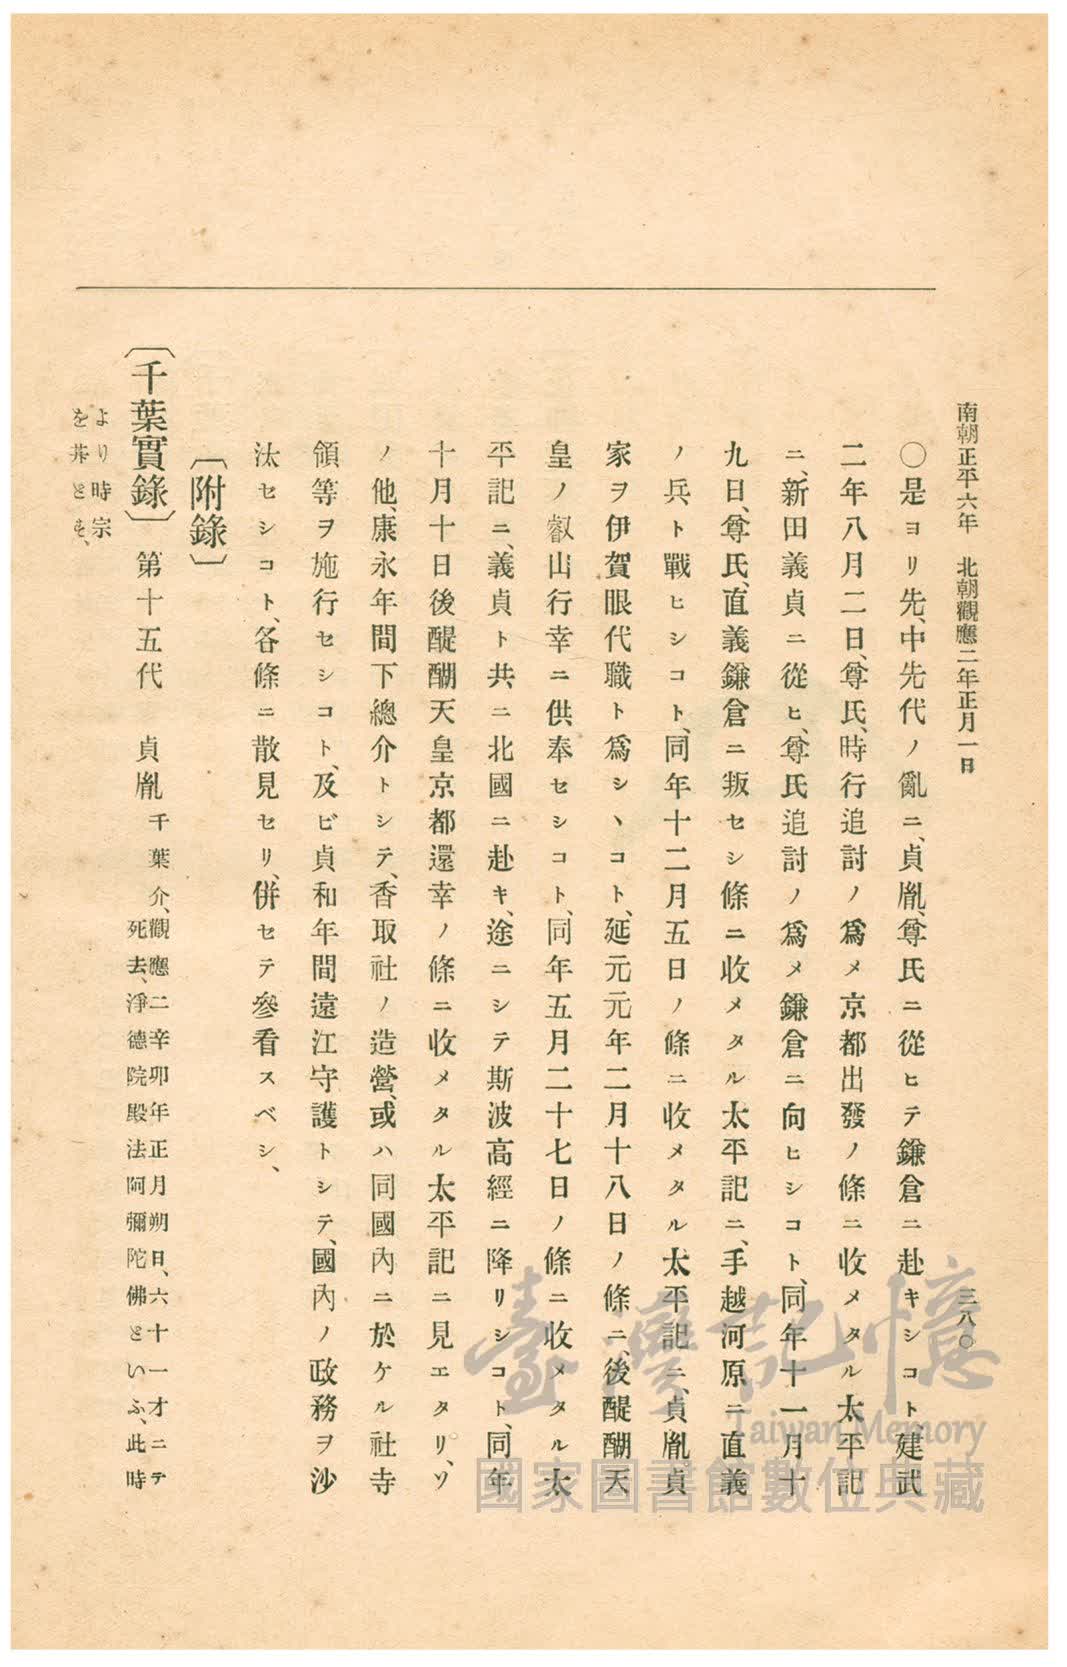 南朝正平六年　北朝觀應二年正月一日　三八〇
〇是ヨリ先、中先代ノ亂ニ、貞胤、尊氏ニ從ヒテ鎌倉ニ赴キシコト、建武
二年八月二日、尊氏、時行追討ノ爲メ京都出發ノ條ニ收メタル太平記
ニ、新田義貞ニ從ヒ、尊氏追討ノ爲メ鎌倉ニ向ヒシコト、同年十一月十
九日、尊氏、直義鎌倉ニ叛セシ條ニ收メタル太平記ニ、手越河原ニ直義
ノ兵ト戰ヒシコト、同年十二月五日ノ條ニ收メタル太平記ニ、貞胤貞
家ヲ伊賀眼代職ト爲シヽコト、延元元年二月十八日ノ條ニ、後醍醐天
皇ノ叡山行幸ニ供奉セシコト、同年五月二十七日ノ條ニ收メタル太
平記ニ、義貞ト共ニ北國ニ赴キ、途ニシテ斯波高經ニ降リシコト、同年
十月十日後醍醐天皇京都還幸ノ條ニ收メタル太平記ニ見エタリ、ソ
ノ他、康永年間下總介トシテ、香取社ノ造營、或ハ同國內ニ於ケル社寺
領等ヲ施行セシコト、及ビ貞和年間遠江守護トシテ、國內ノ政務ヲ沙
汰セシコト、各條ニ散見セリ、併セテ參看スベシ、
〔附錄〕
〔千葉實錄〕　第十五代　貞胤　千葉介、觀應二辛卯年正月朔日、六十一才ニテ
死去、淨德院殿法阿彌陀佛といふ、此時
より時宗
を
臺灣記憶
Taiwan Memory
國家圖書館數位典藏